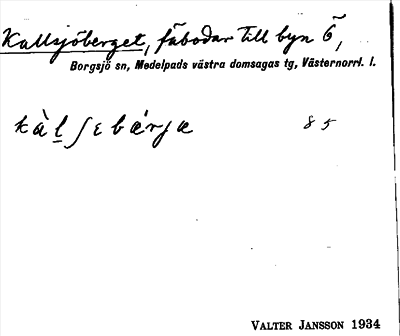 Kallsjöberget, fäbodar till byn Ö,
Borgsjö sn, Medelpads västra domsagas tg, Västernorrl. l.
kàl̲ʃɛbǽrjæ 85
VALTER JANSSON 1934